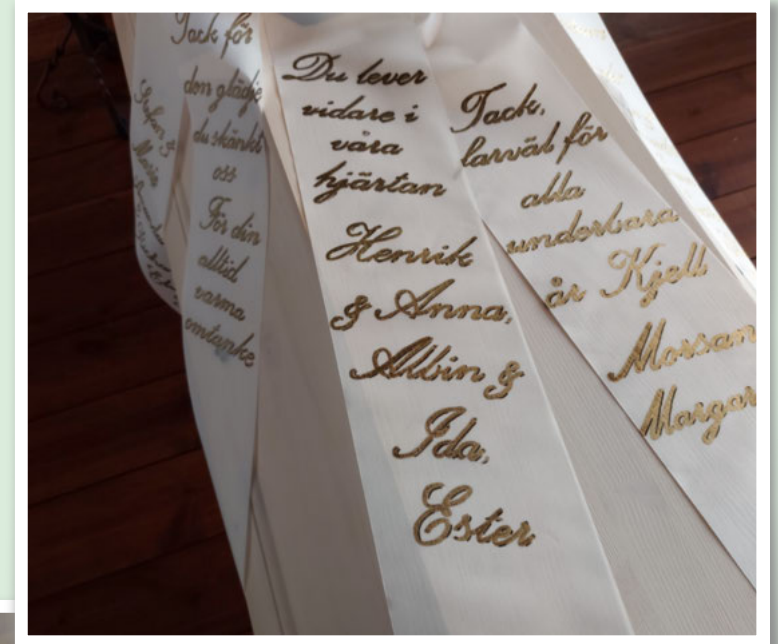 Tack för
den glädje
du skänkt
oss
För din
alltid
varma
omtanke
Du lever
vidare i
våra
hjärtan
Henrik
& Anna,
Albin &
Ida,
Ester
Tack,
farväl för
alla
underbara
år Kjell
Morsan